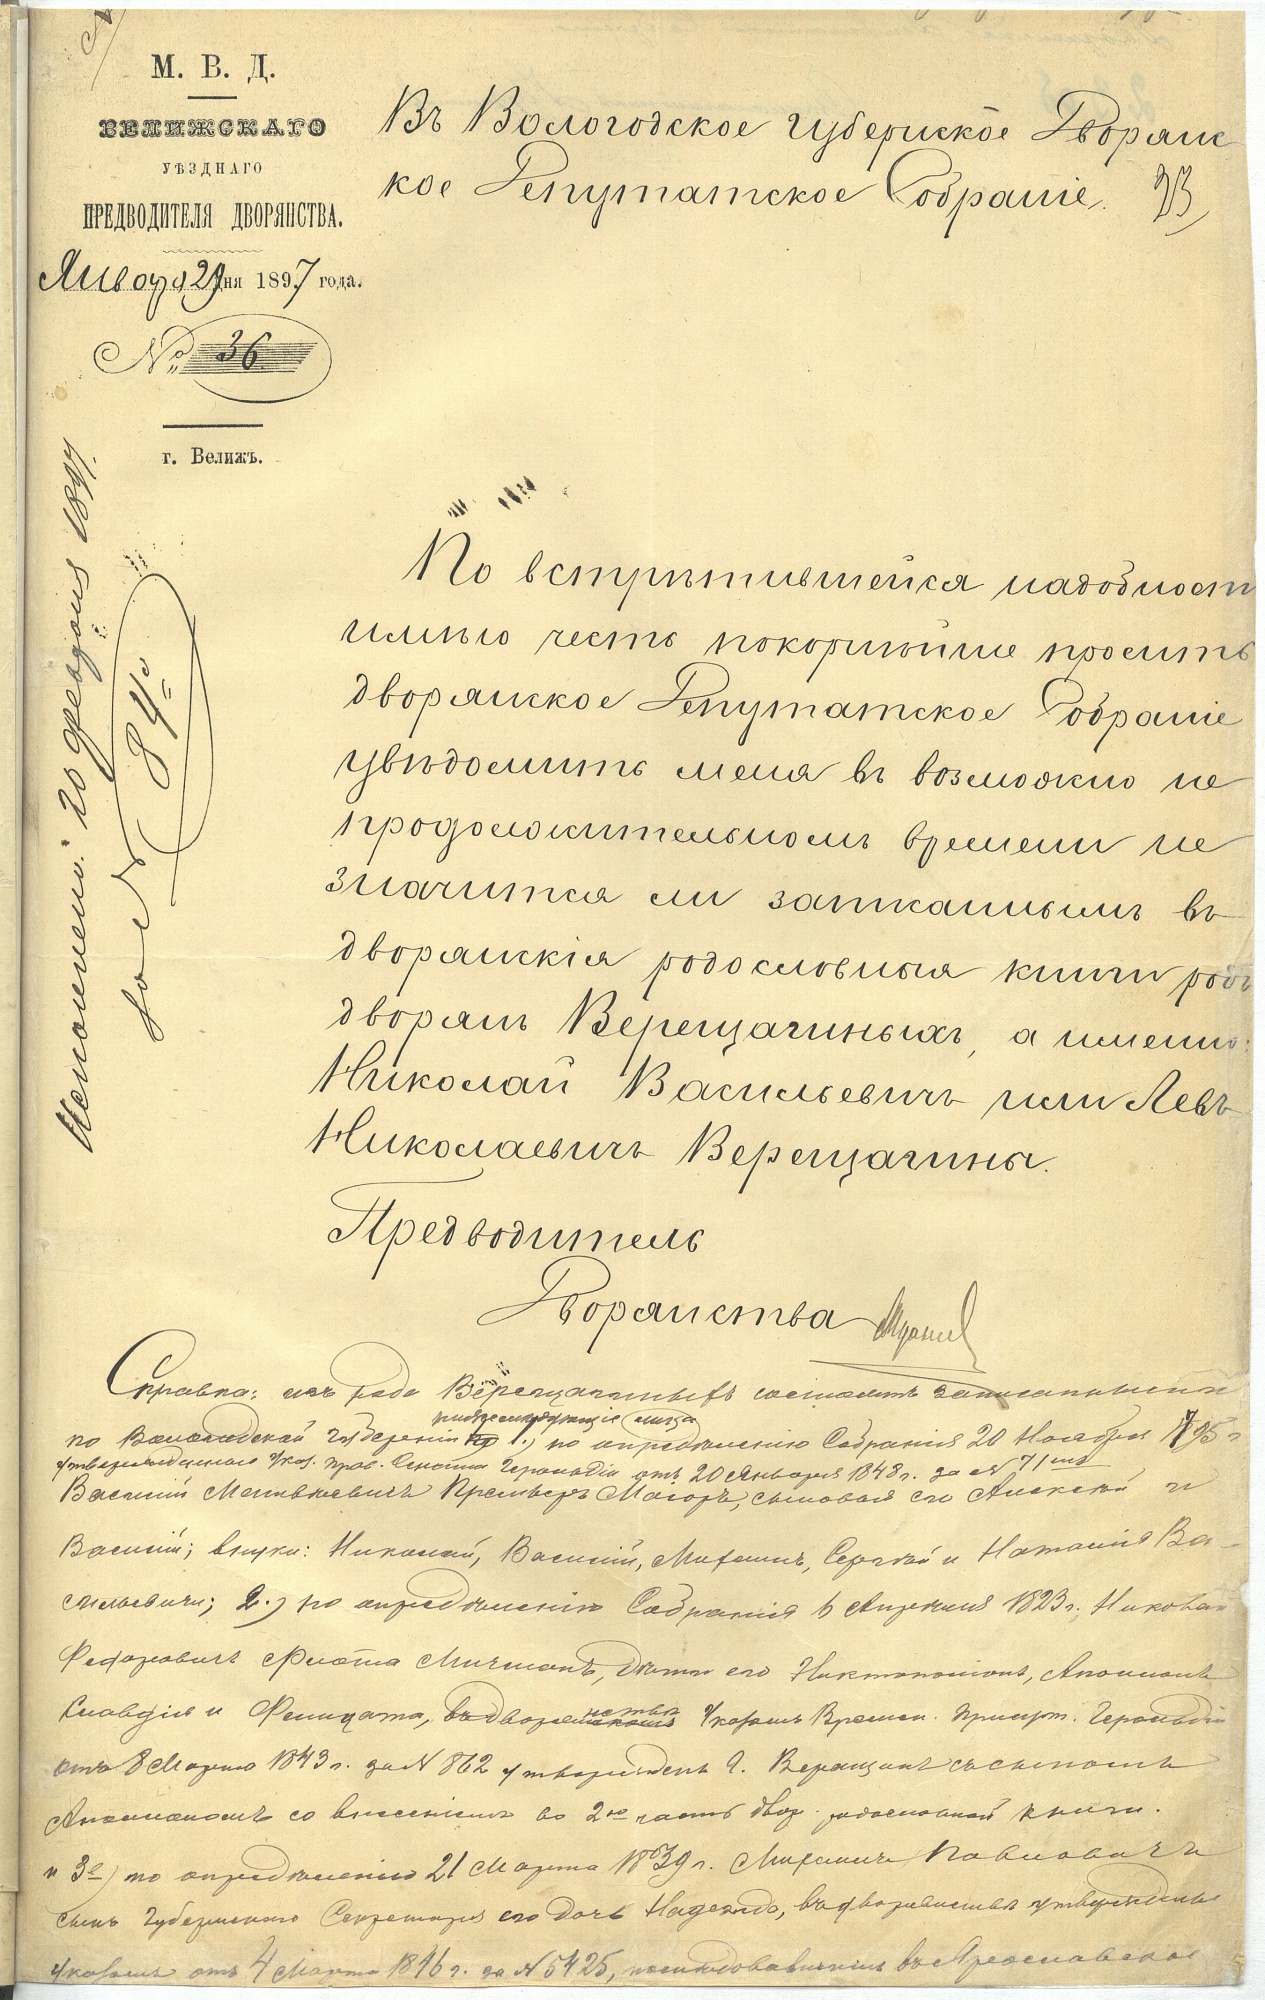 М. В. Д.
ВЕЛИЖСКАГО
УѢЗДНАГО
ПРЕДВОДИТЕЛЯ ДВОРЯНСТВА.
Января 29 дня 1897 года.
№ 36
г. Велижъ.
Въ Вологодское губернское Дворянс
кое Депутатское Собраніе.
По встрѣтившейся надобност
имѣю честь покорнѣйше просить
дворянское Депутатское Собраніе
увѣдомить меня въ возможно не
продолжительномъ времени не
значится ли записаннымъ въ
дворянскія родословныя книги родъ
дворянъ Верещагиныхъ, а именно:
Николай Васильевичъ или Левъ
Николаевичъ Верещагины.
Предводитель
Дворянства
Исполнено 20 февраля 1897.
за № 84
Справка: изъ рода Верещагиныхъ состоятъ записанными
по Вологодской губерніи нижеслѣдующіе лица 1.) по опредѣленію Собранія 20 Ноября 1795 г
утвержденнаго Указ. Прав. Сената Герольдіи отъ 20 Января 1848 г. за №
Василій Матвѣевичъ Премьеръ Маіоръ, сыновья его Алексѣй и
Василій; внуки: Николай, Василій, Михаилъ, Сергѣй и Наталія Ва-
сильевичи; 2.) по опредѣленію Собранія 6 Апрѣля 1823 г. Николай
Федоровичъ Флота Мичманъ, дѣти его Никтополіонъ, Аполлонъ
Клавдія и Фелицата, въ дворянствѣ Указомъ Времен. Присут. Герольдіи
отъ 8 Марта 1843 г. за № 862 утвержденъ Г. Верещагинъ съ сыномъ
Аполлономъ со внесеніемъ во 2ю часть двор. родословной книги.
и 3е) по опредѣленію 21 Марта 1839 г. Михаилъ Павловичъ
сынъ Губернскаго Секретаря его дочь Надежда, въ дворянствѣ утверждены
Указомъ отъ 4 Марта 1846 г. за № 5425, послѣдовавшимъ въ Ярославское